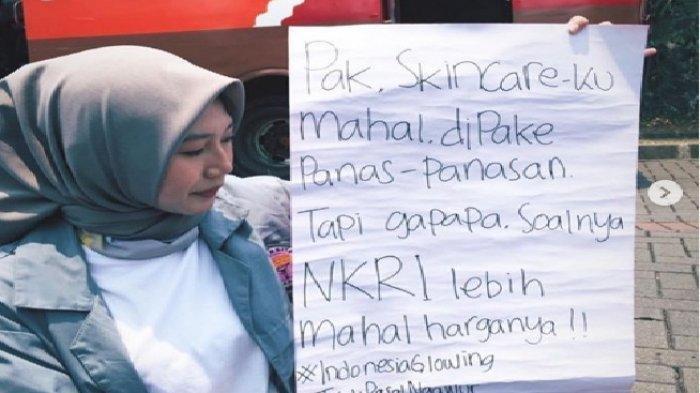 Pak, Skincare-ku
mahal. diPake
Panas-panasan.
Tapi gapapa. Soalnya
NKRI lebih
mahal harganya!!
#IndonesiaGlowing